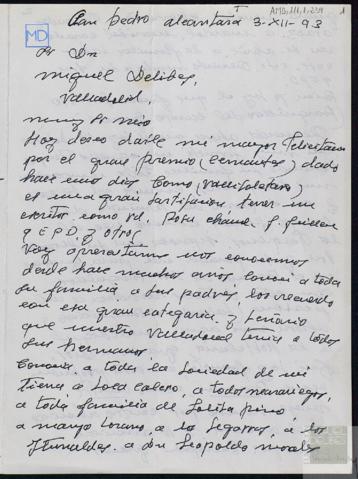 AMD,111,1.239 1
MD
San Pedro Alcantara 3-XII-93
Sr Dn
Miguel Delibes,
Valladolid.
muy Sr mio
Hoy deseo darle mi mayor felicitacion
por el gran premio (cervantes) dado
hace unos dias. Como (vallisoletano)
es una gran satisfacion tener un
escritor como vd. Rosa chacel. J. Guillen
q E.P.D. y otros
Voy a presentarme nos conocemos
desde hace muchos años. Conoci a toda
su familia a sus padres los recuerdo
con esa gran categoria. y señorio
que nuestro Valladolid tenia a todos
sus hermanos.
Conocia a toda la sociedad de mi
tierra a Lola calero, a todos
a toda familia de Lolita pino
a lozano, a los Segarras, a los
a don Leopoldo morales